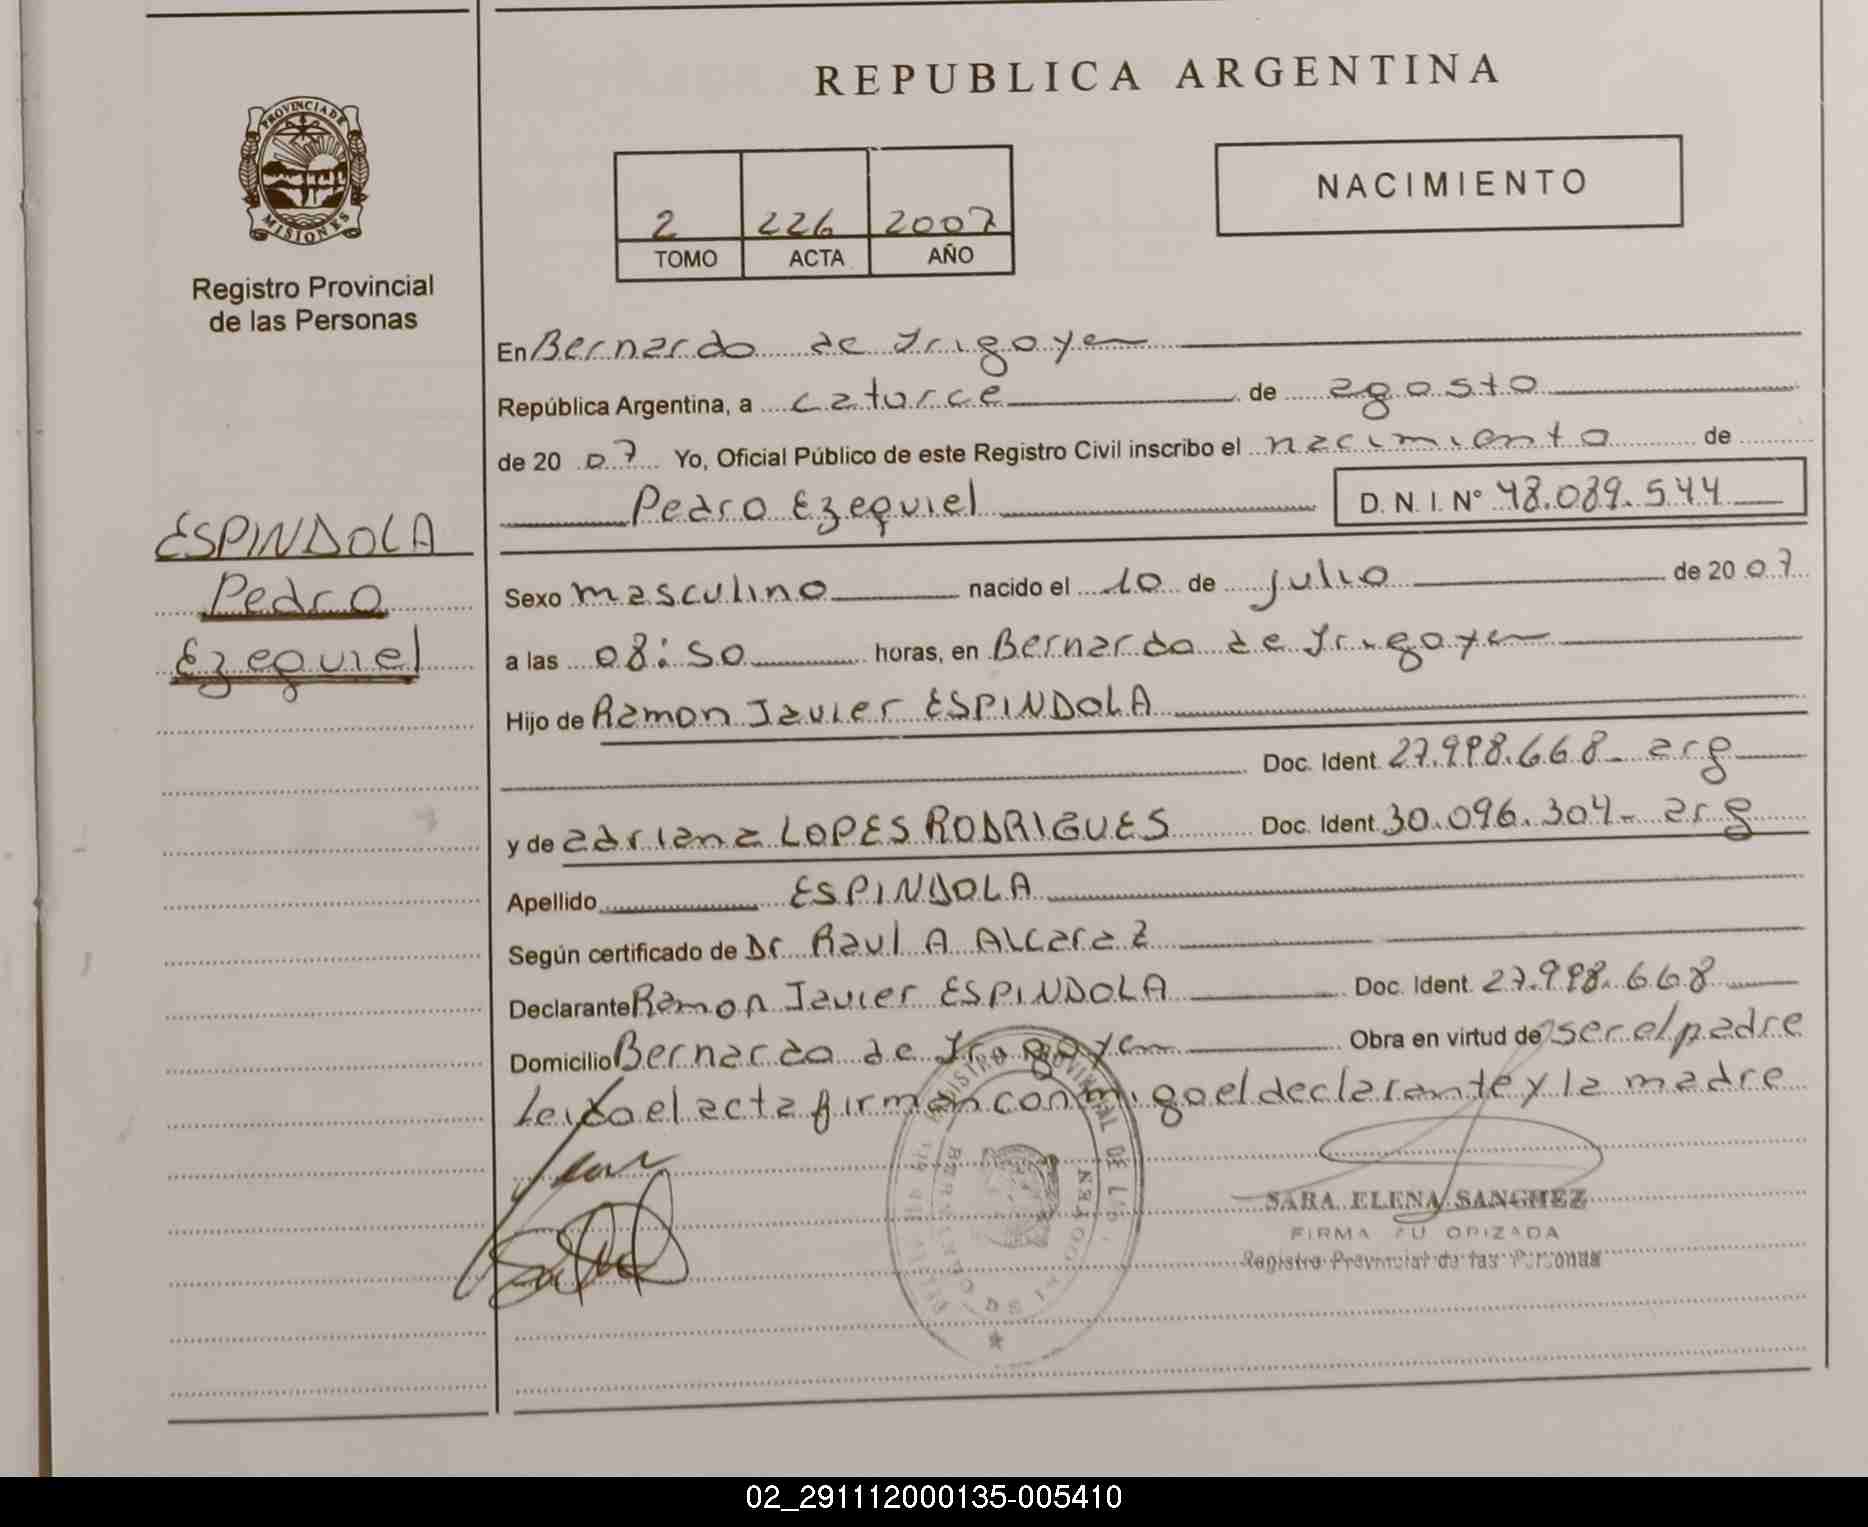 REPUBLICA ARGENTINA
PROVINCIA DE
MISIONES
Registro Provincial
de las Personas
NACIMIENTO
2 226 2007
TOMO ACTA AÑO
En Bernardo de Irigoyen
República Argentina, a catorce de agosto
de 20 07 Yo, Oficial Público de este Registro Civil inscribo el nacimiento de
Pedro Ezequiel D. N. I. N° 48.089.544
ESPINDOLA
Pedro
Ezequiel
Sexo masculino nacido el 10 de julio de 20 07
a las 08:50 horas, en Bernardo de Irigoyen
Hijo de Ramon Javier ESPINDOLA
Doc. Ident. 27.998.668 - arg
y de adriana LOPES RODRIGUES Doc. Ident. 30.096.304 - arg
Apellido ESPINDOLA
Según certificado de Dr Raul A Alcaraz
Declarante Ramon Javier ESPINDOLA Doc. Ident. 27.998.668
Domicilio Bernardo de Irigoyen Obra en virtud de ser el padre
Leida el acta firman conmigo el declarante y la madre
SARA ELENA SANCHEZ
FIRMA AUTORIZADA
Registro Provincial de las Personas
02_291112000135-005410